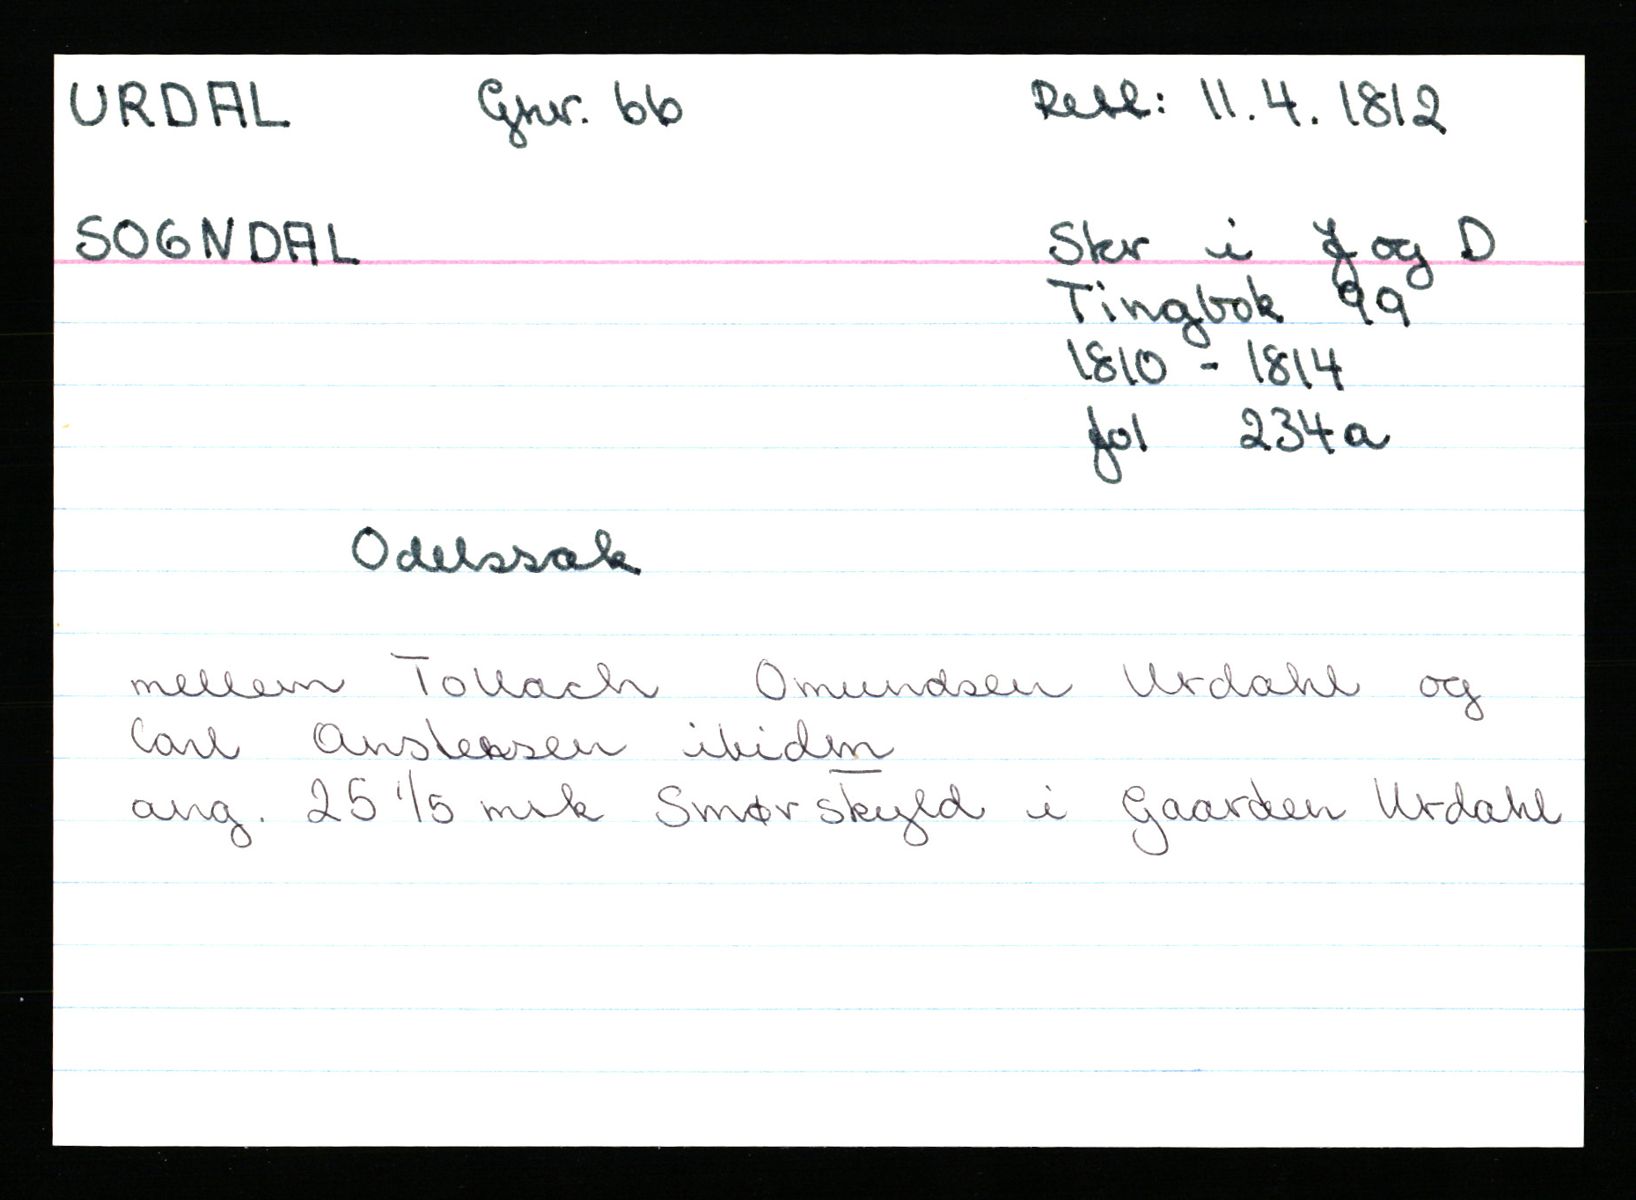 URDAL Gnr. 66 Retl: 11.4.1812
SOGNDAL Skr i J og D
Tingbok 99
1810 - 1814
fol 234a
Odelssak
mellem Tollach Omundsen Urdahl og
Carl Ansteksen ibidm
ang. 25 1/5 mrk Smør skyld i Gaarden Urdahl